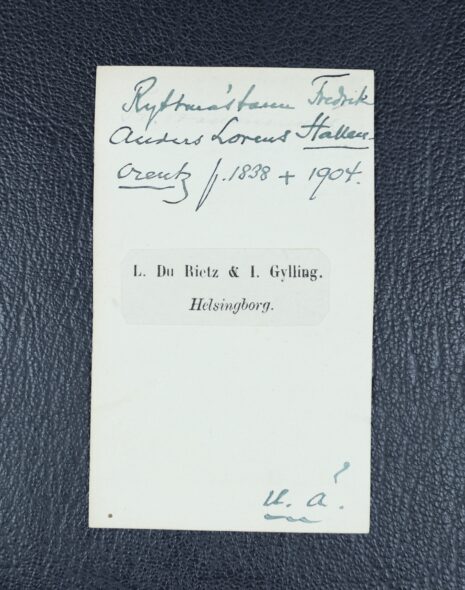 Ryttmästaren Fredrik
Anders Lorens Hallen-
creutz f. 1838 + 1904.
L. Du Rietz & I. Gylling.
Helsingborg.
U. Å.